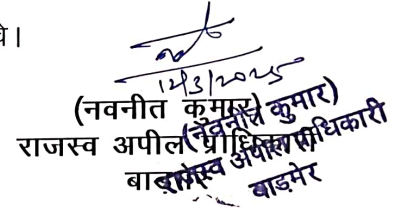 वे।
12/3/2025
(नवनीत कुमार)
राजस्व अपील प्राधिकारी
बाड़मेर
(नवनीत कुमार)
राजस्व अपील प्राधिकारी
बाड़मेर